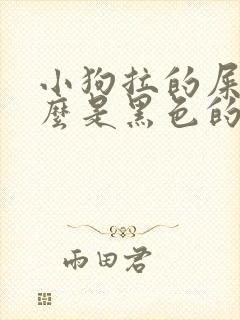 小狗拉的屎
麼是黑色的
雨田君